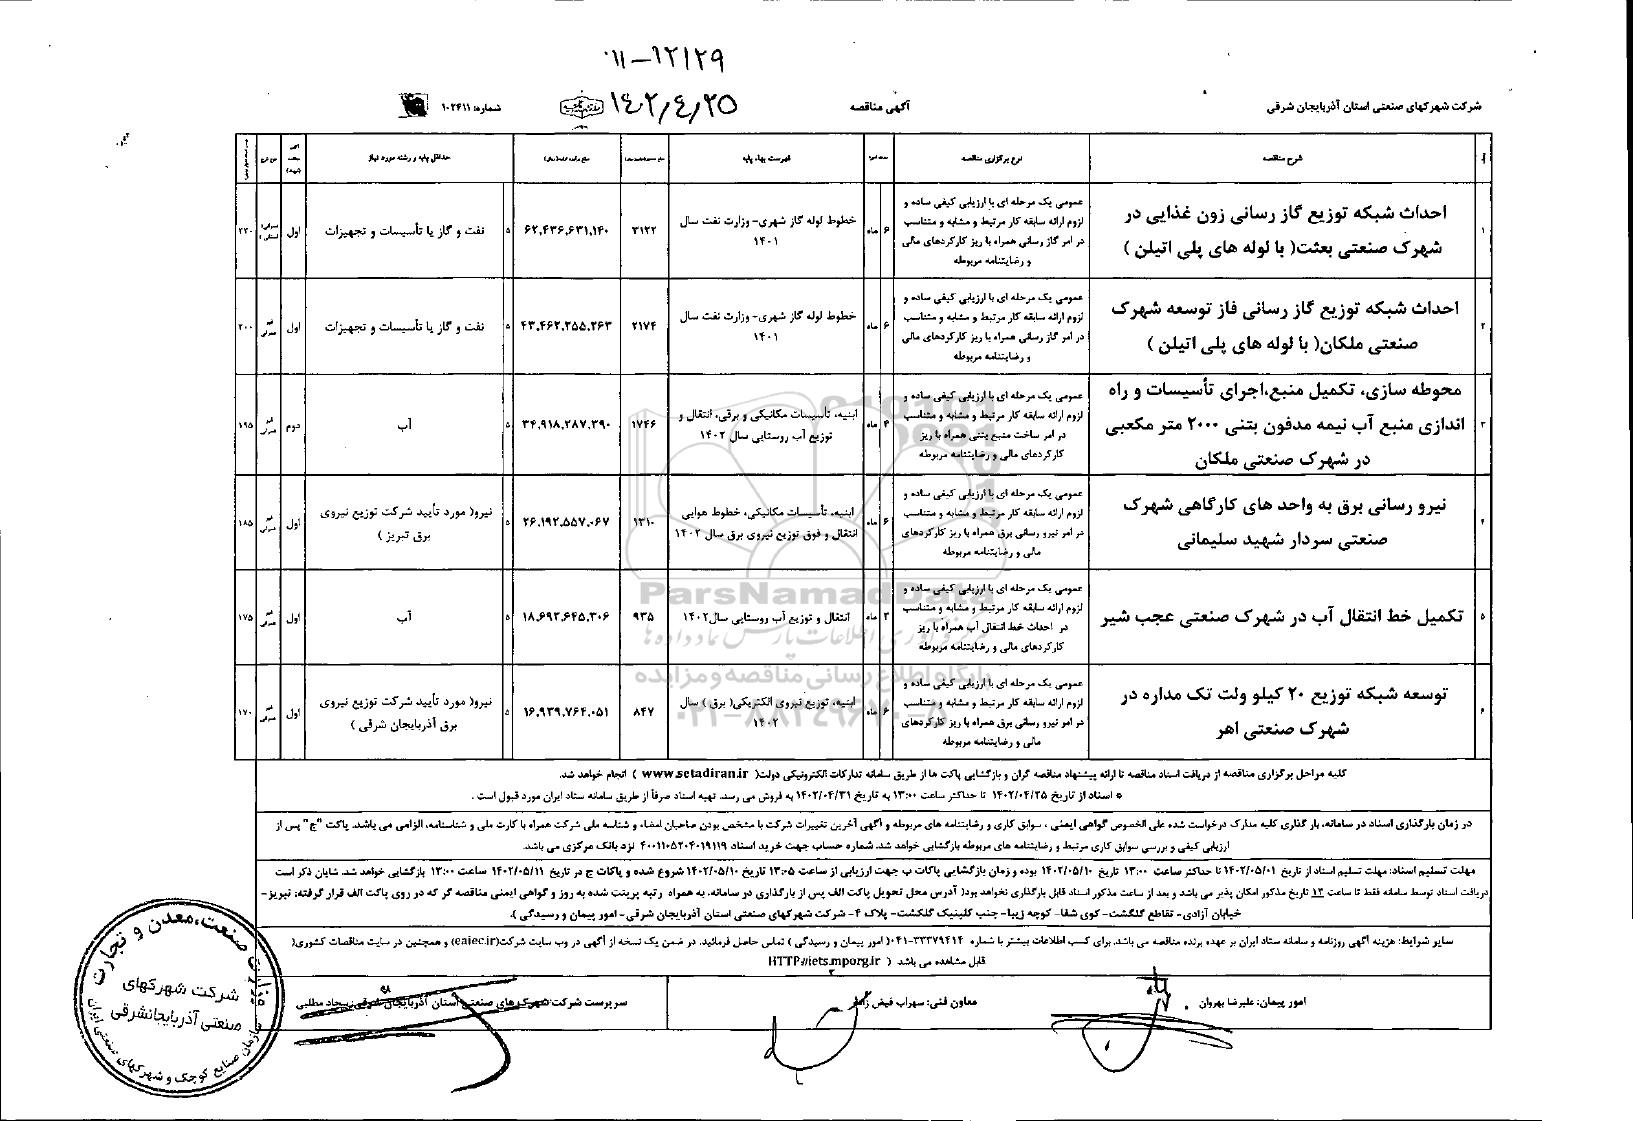 ۰۱۱-۱۲۱۲۹
شرکت شهرکهای صنعتی استان آذربایجان شرقی
آگهی مناقصه
۱۴۰۲/۴/۲۵
شماره: ۱۰۲۴۱۱
شرح مناقصه
نوع برگزاری مناقصه
فهرست بهاء پایه
حداقل پایه و رشته مورد نیاز
۱
احداث شبکه توزیع گاز رسانی زون غذایی در
شهرک صنعتی بعثت( با لوله های پلی اتیلن )
عمومی یک مرحله ای با ارزیابی کیفی ساده و
لزوم ارائه سابقه کار مرتبط و مشابه و متناسب
در امر گاز رسانی همراه با ریز کارکردهای مالی
و رضایتنامه مربوطه
۶ ماه
خطوط لوله گاز شهری- وزارت نفت سال
۱۴۰۱
۳۱۲۲
۶۲,۴۳۶,۶۳۱,۱۴۰
۵
نفت و گاز یا تأسیسات و تجهیزات
اول
۲۲۰
۲
احداث شبکه توزیع گاز رسانی فاز توسعه شهرک
صنعتی ملکان( با لوله های پلی اتیلن )
عمومی یک مرحله ای با ارزیابی کیفی ساده و
لزوم ارائه سابقه کار مرتبط و مشابه و متناسب
در امر گاز رسانی همراه با ریز کارکردهای مالی
و رضایتنامه مربوطه
۶ ماه
خطوط لوله گاز شهری- وزارت نفت سال
۱۴۰۱
۲۱۷۴
۴۳,۴۶۲,۲۵۵,۲۶۳
۵
نفت و گاز یا تأسیسات و تجهیزات
اول
غیر عمرانی
۲۰۰
۳
محوطه سازی، تکمیل منبع،اجرای تأسیسات و راه
اندازی منبع آب نیمه مدفون بتنی ۲۰۰۰ متر مکعبی
در شهرک صنعتی ملکان
عمومی یک مرحله ای با ارزیابی کیفی ساده و
لزوم ارائه سابقه کار مرتبط و مشابه و متناسب
در امر ساخت منبع بتنی همراه با ریز
کارکردهای مالی و رضایتنامه مربوطه
۴ ماه
ابنیه، تأسیسات مکانیکی و برقی، انتقال و
توزیع آب روستایی سال ۱۴۰۲
۱۷۴۶
۳۴,۹۱۸,۲۸۷,۳۹۰
۵
آب
دوم
غیر عمرانی
۱۹۵
۴
نیرو رسانی برق به واحد های کارگاهی شهرک
صنعتی سردار شهید سلیمانی
عمومی یک مرحله ای با ارزیابی کیفی ساده و
لزوم ارائه سابقه کار مرتبط و مشابه و متناسب
در امر نیرو رسانی برق همراه با ریز کارکردهای
مالی و رضایتنامه مربوطه
۶ ماه
ابنیه، تأسیسات مکانیکی، خطوط هوایی
انتقال و فوق توزیع نیروی برق سال ۱۴۰۲
۱۳۱۰
۲۶,۱۹۲,۵۵۷,۰۶۷
۵
نیرو( مورد تأیید شرکت توزیع نیروی
برق تبریز )
اول
غیر عمرانی
۱۸۵
۵
تکمیل خط انتقال آب در شهرک صنعتی عجب شیر
عمومی یک مرحله ای با ارزیابی کیفی ساده و
لزوم ارائه سابقه کار مرتبط و مشابه و متناسب
در احداث خط انتقال آب همراه با ریز
کارکردهای مالی و رضایتنامه مربوطه
۳ ماه
انتقال و توزیع آب روستایی سال۱۴۰۲
۹۳۵
۱۸,۶۹۲,۶۴۵,۳۰۶
۵
آب
اول
غیر عمرانی
۱۷۵
۶
توسعه شبکه توزیع ۲۰ کیلو ولت تک مداره در
شهرک صنعتی اهر
عمومی یک مرحله ای با ارزیابی کیفی ساده و
لزوم ارائه سابقه کار مرتبط و مشابه و متناسب
در امر نیرو رسانی برق همراه با ریز کارکردهای
مالی و رضایتنامه مربوطه
۶ ماه
ابنیه، توزیع نیروی الکتریکی( برق ) سال
۱۴۰۲
۸۴۷
۱۶,۹۳۹,۷۶۴,۰۵۱
۵
نیرو( مورد تأیید شرکت توزیع نیروی
برق آذربایجان شرقی )
اول
غیر عمرانی
۱۷۰
ParsNamadData
فرآوری اطلاعات پارس نماد داده ها
پایگاه اطلاع رسانی مناقصه و مزایده
۰۲۱-۸۸۳۴۹۶۷۰-۸
کلیه مراحل برگزاری مناقصه از دریافت اسناد مناقصه تا ارائه پیشنهاد مناقصه گران و بازگشایی پاکت ها از طریق سامانه تدارکات الکترونیکی دولت( www.setadiran.ir ) انجام خواهد شد.
* اسناد از تاریخ ۱۴۰۲/۰۴/۲۵ تا حداکثر ساعت ۱۳:۰۰ به تاریخ ۱۴۰۲/۰۴/۳۱ به فروش می رسد. تهیه اسناد صرفاً از طریق سامانه ستاد ایران مورد قبول است .
در زمان بارگذاری اسناد در سامانه، بار گذاری کلیه مدارک درخواست شده علی الخصوص گواهی ایمنی ، سوابق کاری و رضایتنامه های مربوطه و آگهی آخرین تغییرات شرکت با مشخص بودن صاحبان امضاء و شناسه ملی شرکت همراه با کارت ملی و شناسنامه، الزامی می باشد. پاکت "ج" پس از
ارزیابی کیفی و بررسی سوابق کاری مرتبط و رضایتنامه های مربوطه بازگشایی خواهد شد. شماره حساب جهت خرید اسناد ۴۰۰۱۱۰۵۲۰۴۰۱۹۱۱۹ نزد بانک مرکزی می باشد.
مهلت تسلیم اسناد: مهلت تسلیم اسناد از تاریخ ۱۴۰۲/۰۵/۰۱ تا حداکثر ساعت ۱۳:۰۰ تاریخ ۱۴۰۲/۰۵/۱۰ بوده و زمان بازگشایی پاکات ب جهت ارزیابی از ساعت ۱۳:۰۵ تاریخ ۱۴۰۲/۰۵/۱۰ شروع شده و پاکات ج در تاریخ ۱۴۰۲/۰۵/۱۱ ساعت ۱۳:۰۰ بازگشایی خواهد شد. شایان ذکر است
دریافت اسناد توسط سامانه فقط تا ساعت ۱۳ تاریخ مذکور امکان پذیر می باشد و بعد از ساعت مذکور اسناد قابل بارگذاری نخواهد بود( آدرس محل تحویل پاکت الف پس از بارگذاری در سامانه، به همراه رتبه پرینت شده به روز و گواهی ایمنی مناقصه گر که در روی پاکت الف قرار گرفته: تبریز-
خیابان آزادی- تقاطع گلگشت- کوی شفا- کوچه زیبا- جنب کلینیک گلگشت- پلاک ۴- شرکت شهرکهای صنعتی استان آذربایجان شرقی- امور پیمان و رسیدگی ).
سایر شرایط: هزینه آگهی روزنامه و سامانه ستاد ایران بر عهده برنده مناقصه می باشد. برای کسب اطلاعات بیشتر با شماره ۰۴۱-۳۳۳۷۹۴۱۴( امور پیمان و رسیدگی ) تماس حاصل فرمائید. در ضمن یک نسخه از آگهی در وب سایت شرکت(eaiec.ir) و همچنین در سایت مناقصات کشوری(
HTTP://iets.mporg.ir ) قابل مشاهده می باشد
امور پیمان: علیرضا بهروان
معاون فنی: سهراب فیض زاهد
سرپرست شرکت شهرکهای صنعتی استان آذربایجان شرقی: سجاد مطلبی
وزارت صنعت، معدن و تجارت
شرکت شهرکهای
صنعتی آذربایجانشرقی
سازمان صنایع کوچک و شهرکهای صنعتی ایران